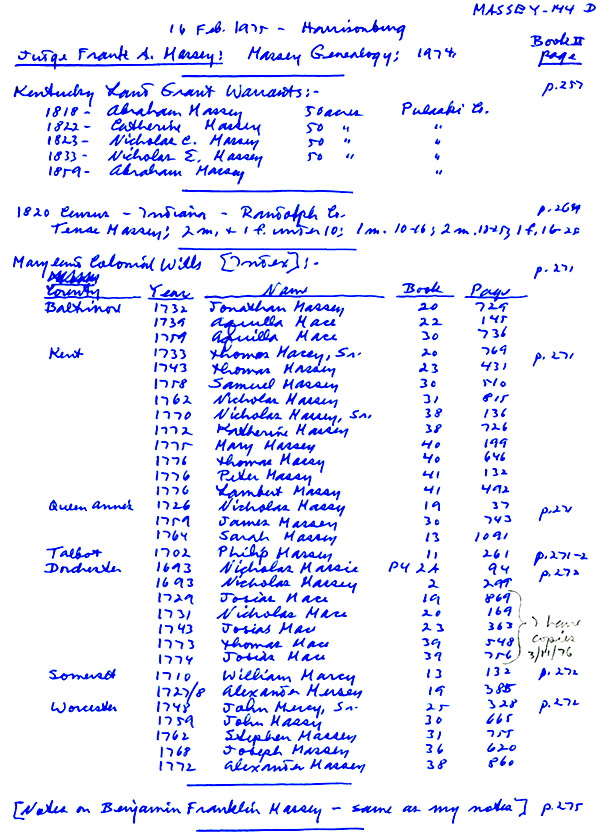 MASSEY-144 D
16 Feb. 1975 - Harrisonburg
Judge Frank A. Massey: Massey Genealogy; 1974. Book II page
Kentucky Land Grant Warrants:- p.257
1818- Abraham Massey 50 acres Pulaski Co.
1822- Catherine Massey 50 " "
1823- Nicholas C. Massey 50 " "
1833- Nicholas E. Massey 50 " "
1859- Abraham Massey "
1820 Census - Indiana - Randolph Co. p.264
Tense Massey; 2 m, + 1 f. under 10; 1 m. 10-16; 2 m. 18-25; 1 f. 16-25
Maryland Colonial Wills [Index]:- p.271
County Year Name Book Page
Baltimore 1732 Jonathan Massey 20 729
1739 Aquilla Mace 22 145
1759 Aquilla Mace 30 736
Kent 1733 Thomas Macey, Sr. 20 769 p.271
1743 Thomas Massey 23 431
1758 Samuel Massey 30 510
1762 Nicholas Massey 31 815
1770 Nicholas Massey, Sr. 38 136
1772 Katherine Massey 38 726
1775 Mary Massey 40 199
1776 Thomas Massy 40 646
1776 Peter Massy 41 132
1776 Lambert Massy 41 492
Queen Anne's 1726 Nicholas Massy 19 37 p.271
1759 James Massey 30 743
1764 Sarah Massey 13 1091
Talbott 1702 Philip Massey 11 261 p.271-2
Dorchester 1693 Nicholas Massie P4 2A 94 p.272
1693 Nicholas Massey 2 299
1729 Josias Mace 19 869
1731 Nicholas Mace 20 169
1743 Josias Mace 23 363 I have
1773 Thomas Mace 39 548 copies
1774 Josias Mace 39 756 3/11/76
Somerset 1710 William Marcy 13 132 p.272
1727/8 Alexander Mersey 19 385
Worcester 1748 John Mercy, Sr. 25 328 p.272
1759 John Massy 30 665
1762 Stephen Massey 31 755
1768 Joseph Massey 36 620
1772 Alexander Massey 38 860
[Notes on Benjamin Franklin Massey - same as my notes"] p.275